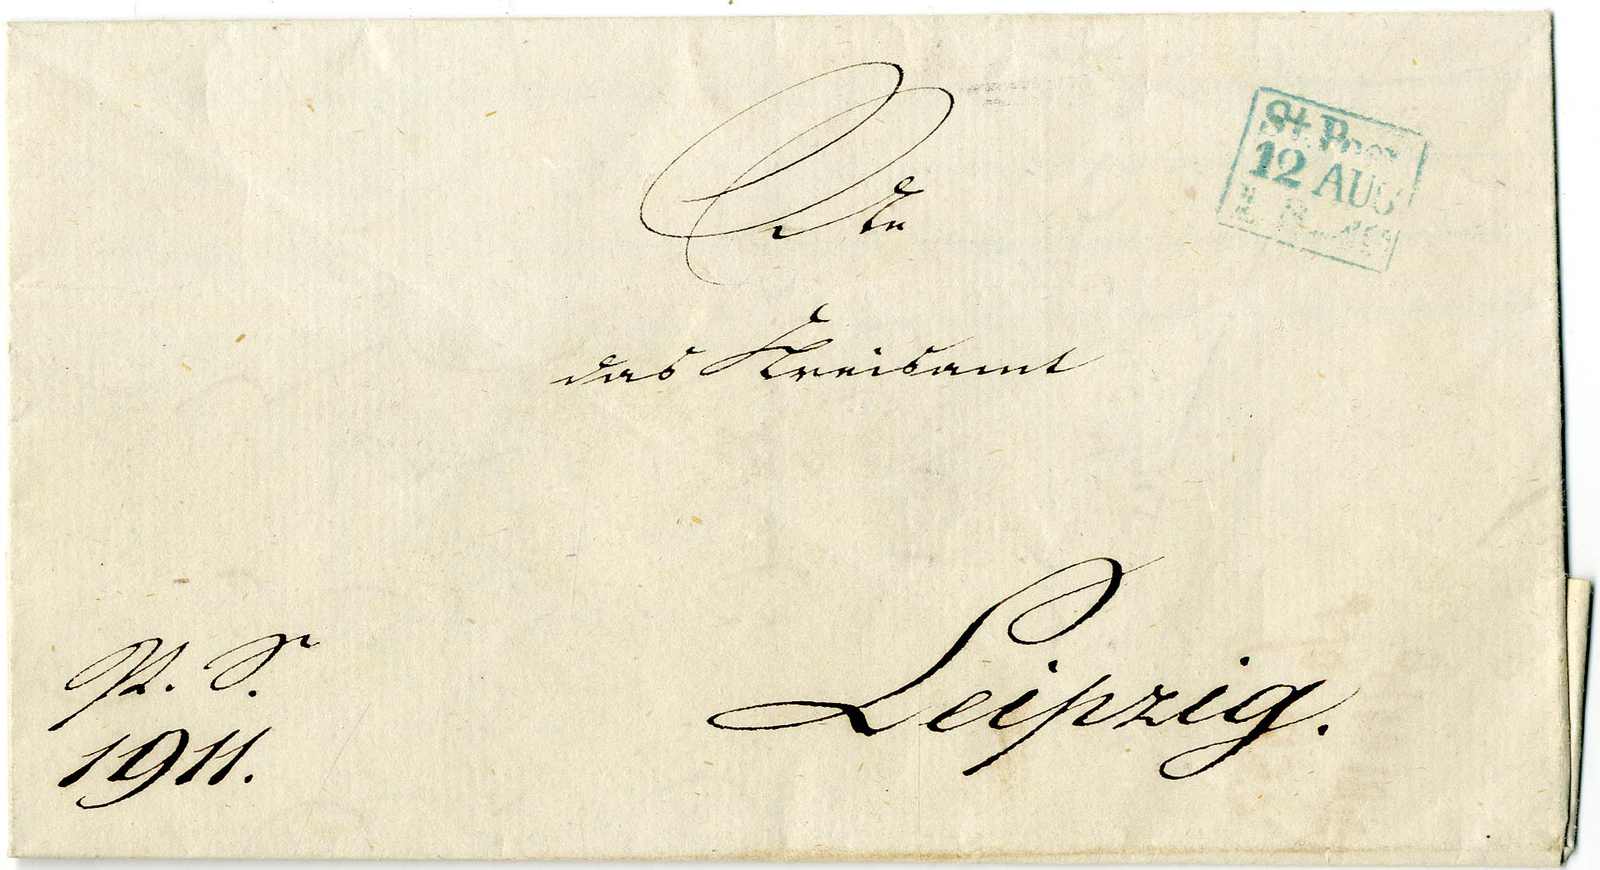 St. Post
12 AUG
An
das Kreisamt
Leipzig.
P. S.
1911.